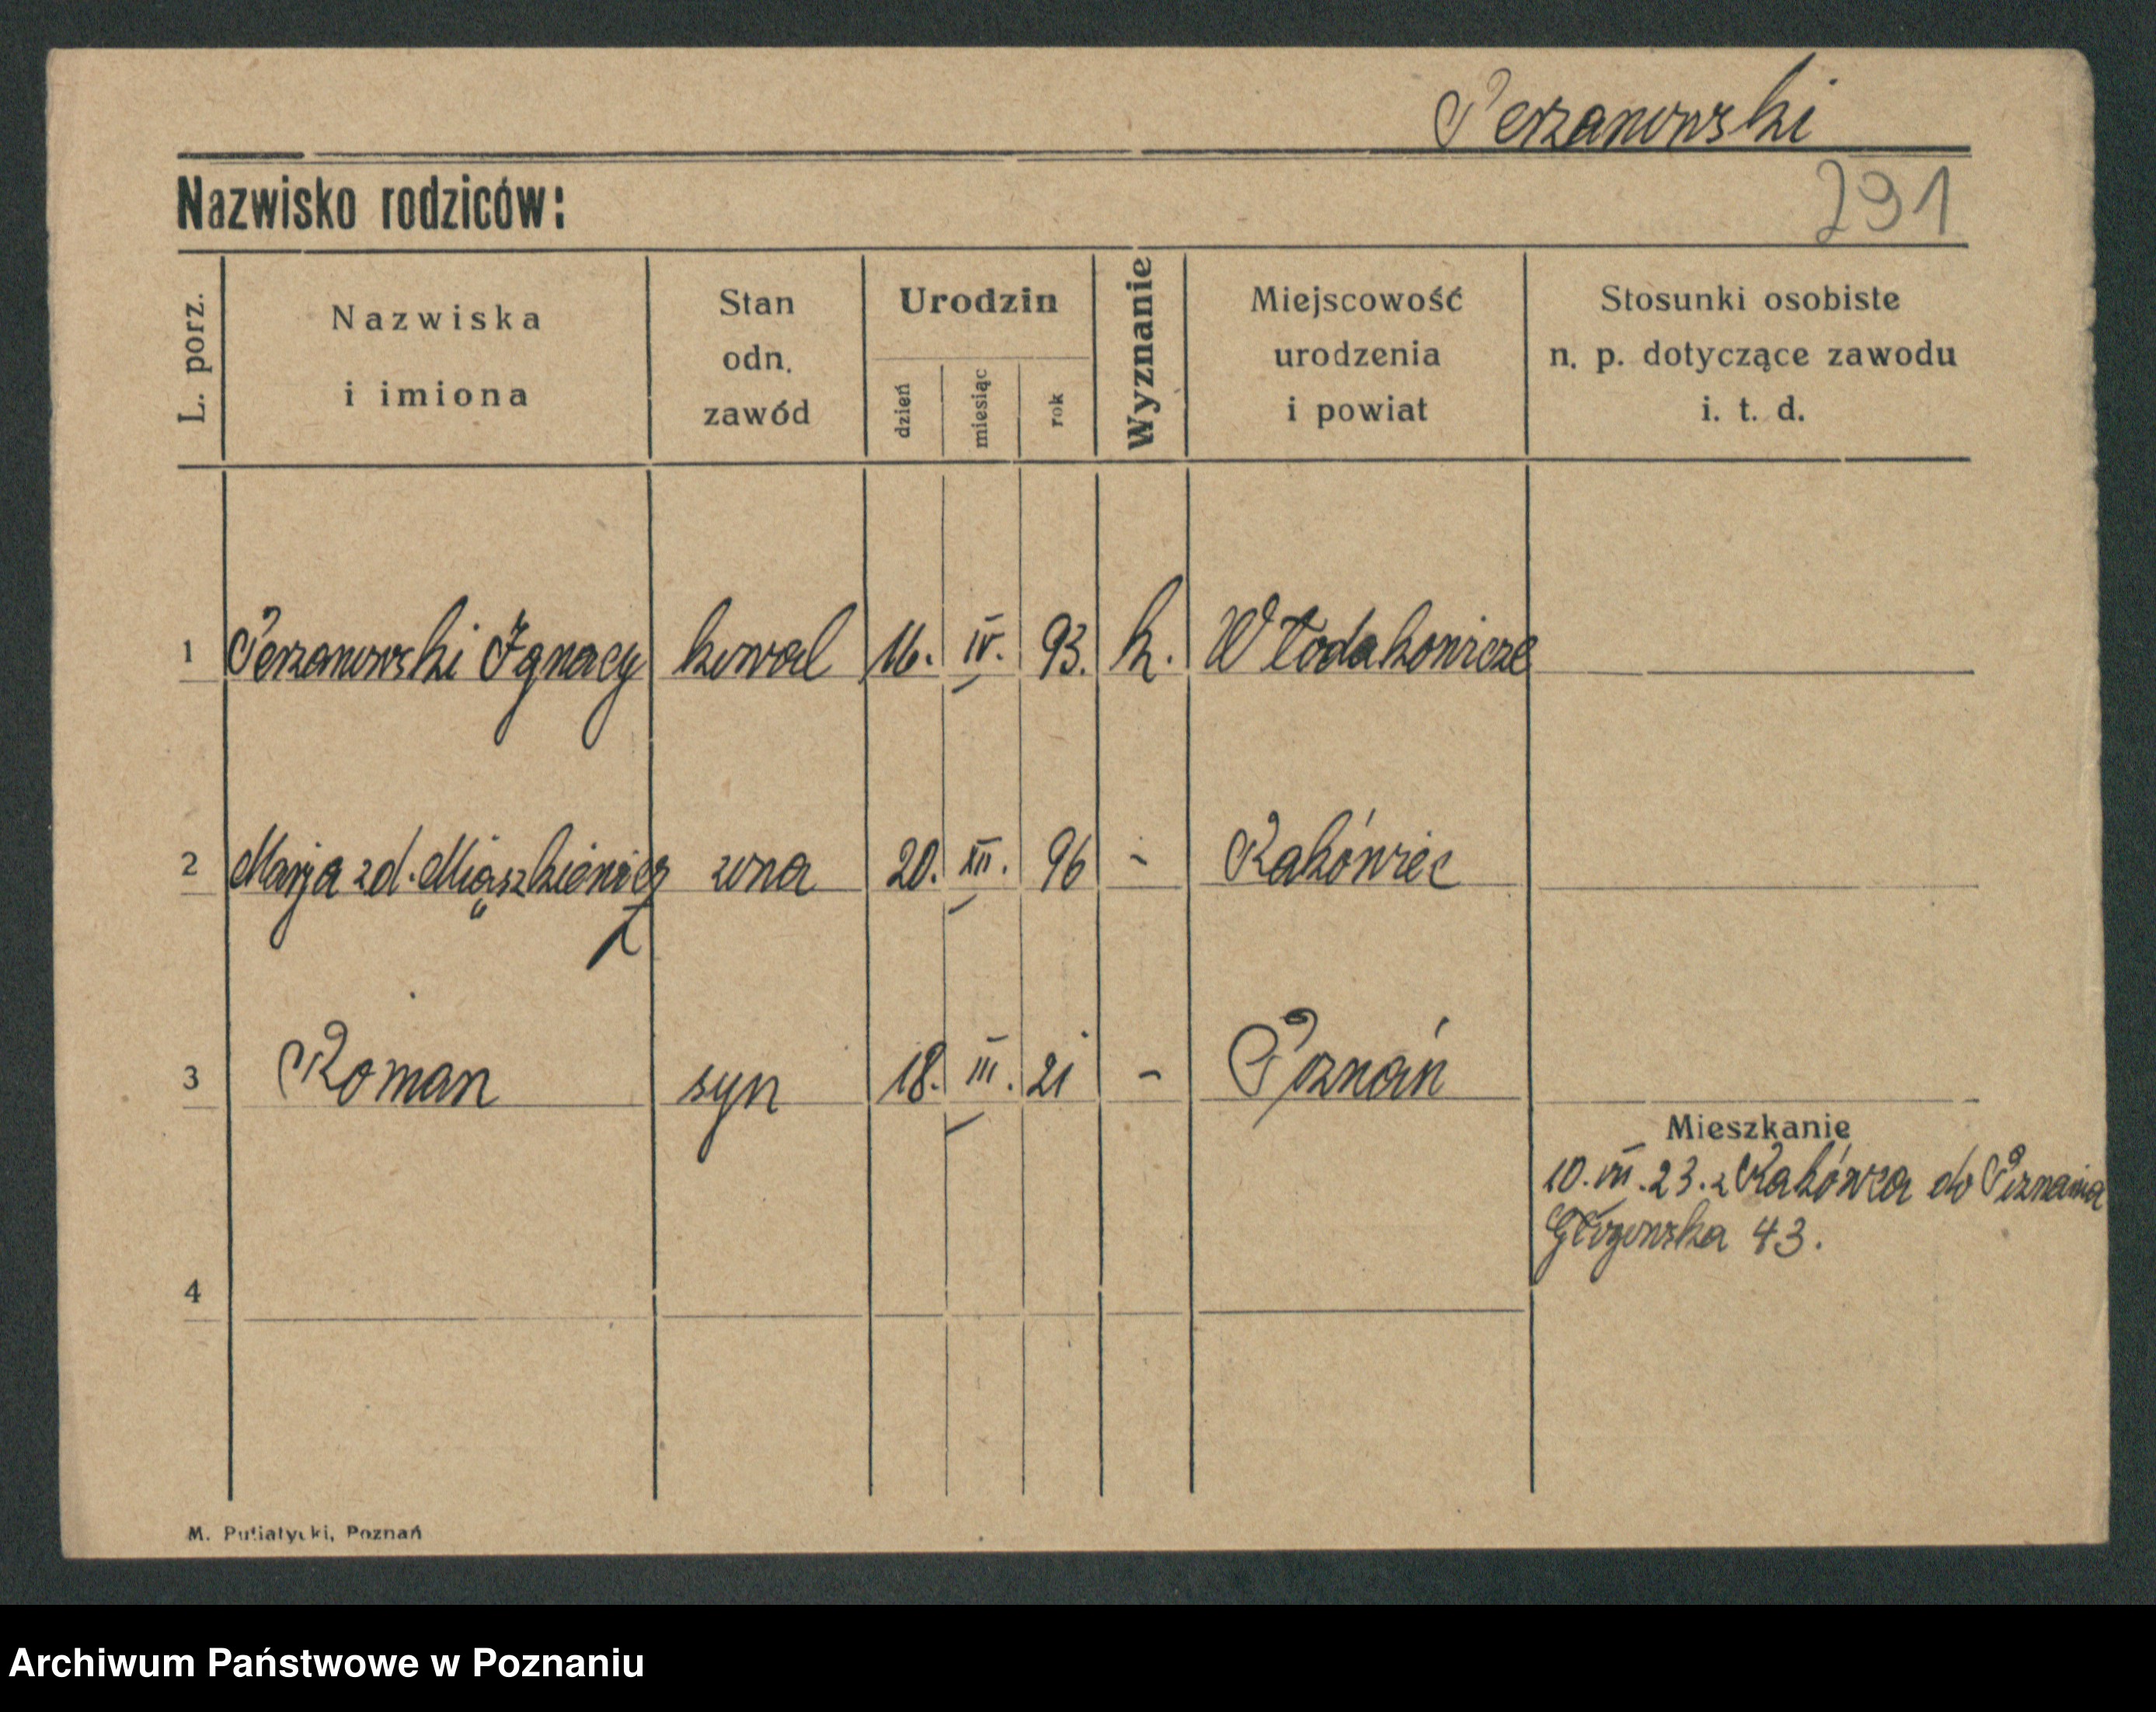 Perzanowski
Nazwisko rodziców:
291
L. porz.
Nazwiska
i imiona
Stan
odn.
zawód
Urodzin
dzień
miesiąc
rok
Wyznanie
Miejscowość
urodzenia
i powiat
Stosunki osobiste
n. p. dotyczące zawodu
i. t. d.
1 Perzanowski Ignacy kowal 16. IV. 93. k. Włodakowicze
2 Marja zd. Miąszkiewicz żona 20. XII. 96 - Rakówiec
3 Roman syn 18. III. 21 - Poznań
Mieszkanie
10. VII. 23. z Rakówca do Poznania
Głogowska 43.
4
M. Putiatycki, Poznań
Archiwum Państwowe w Poznaniu